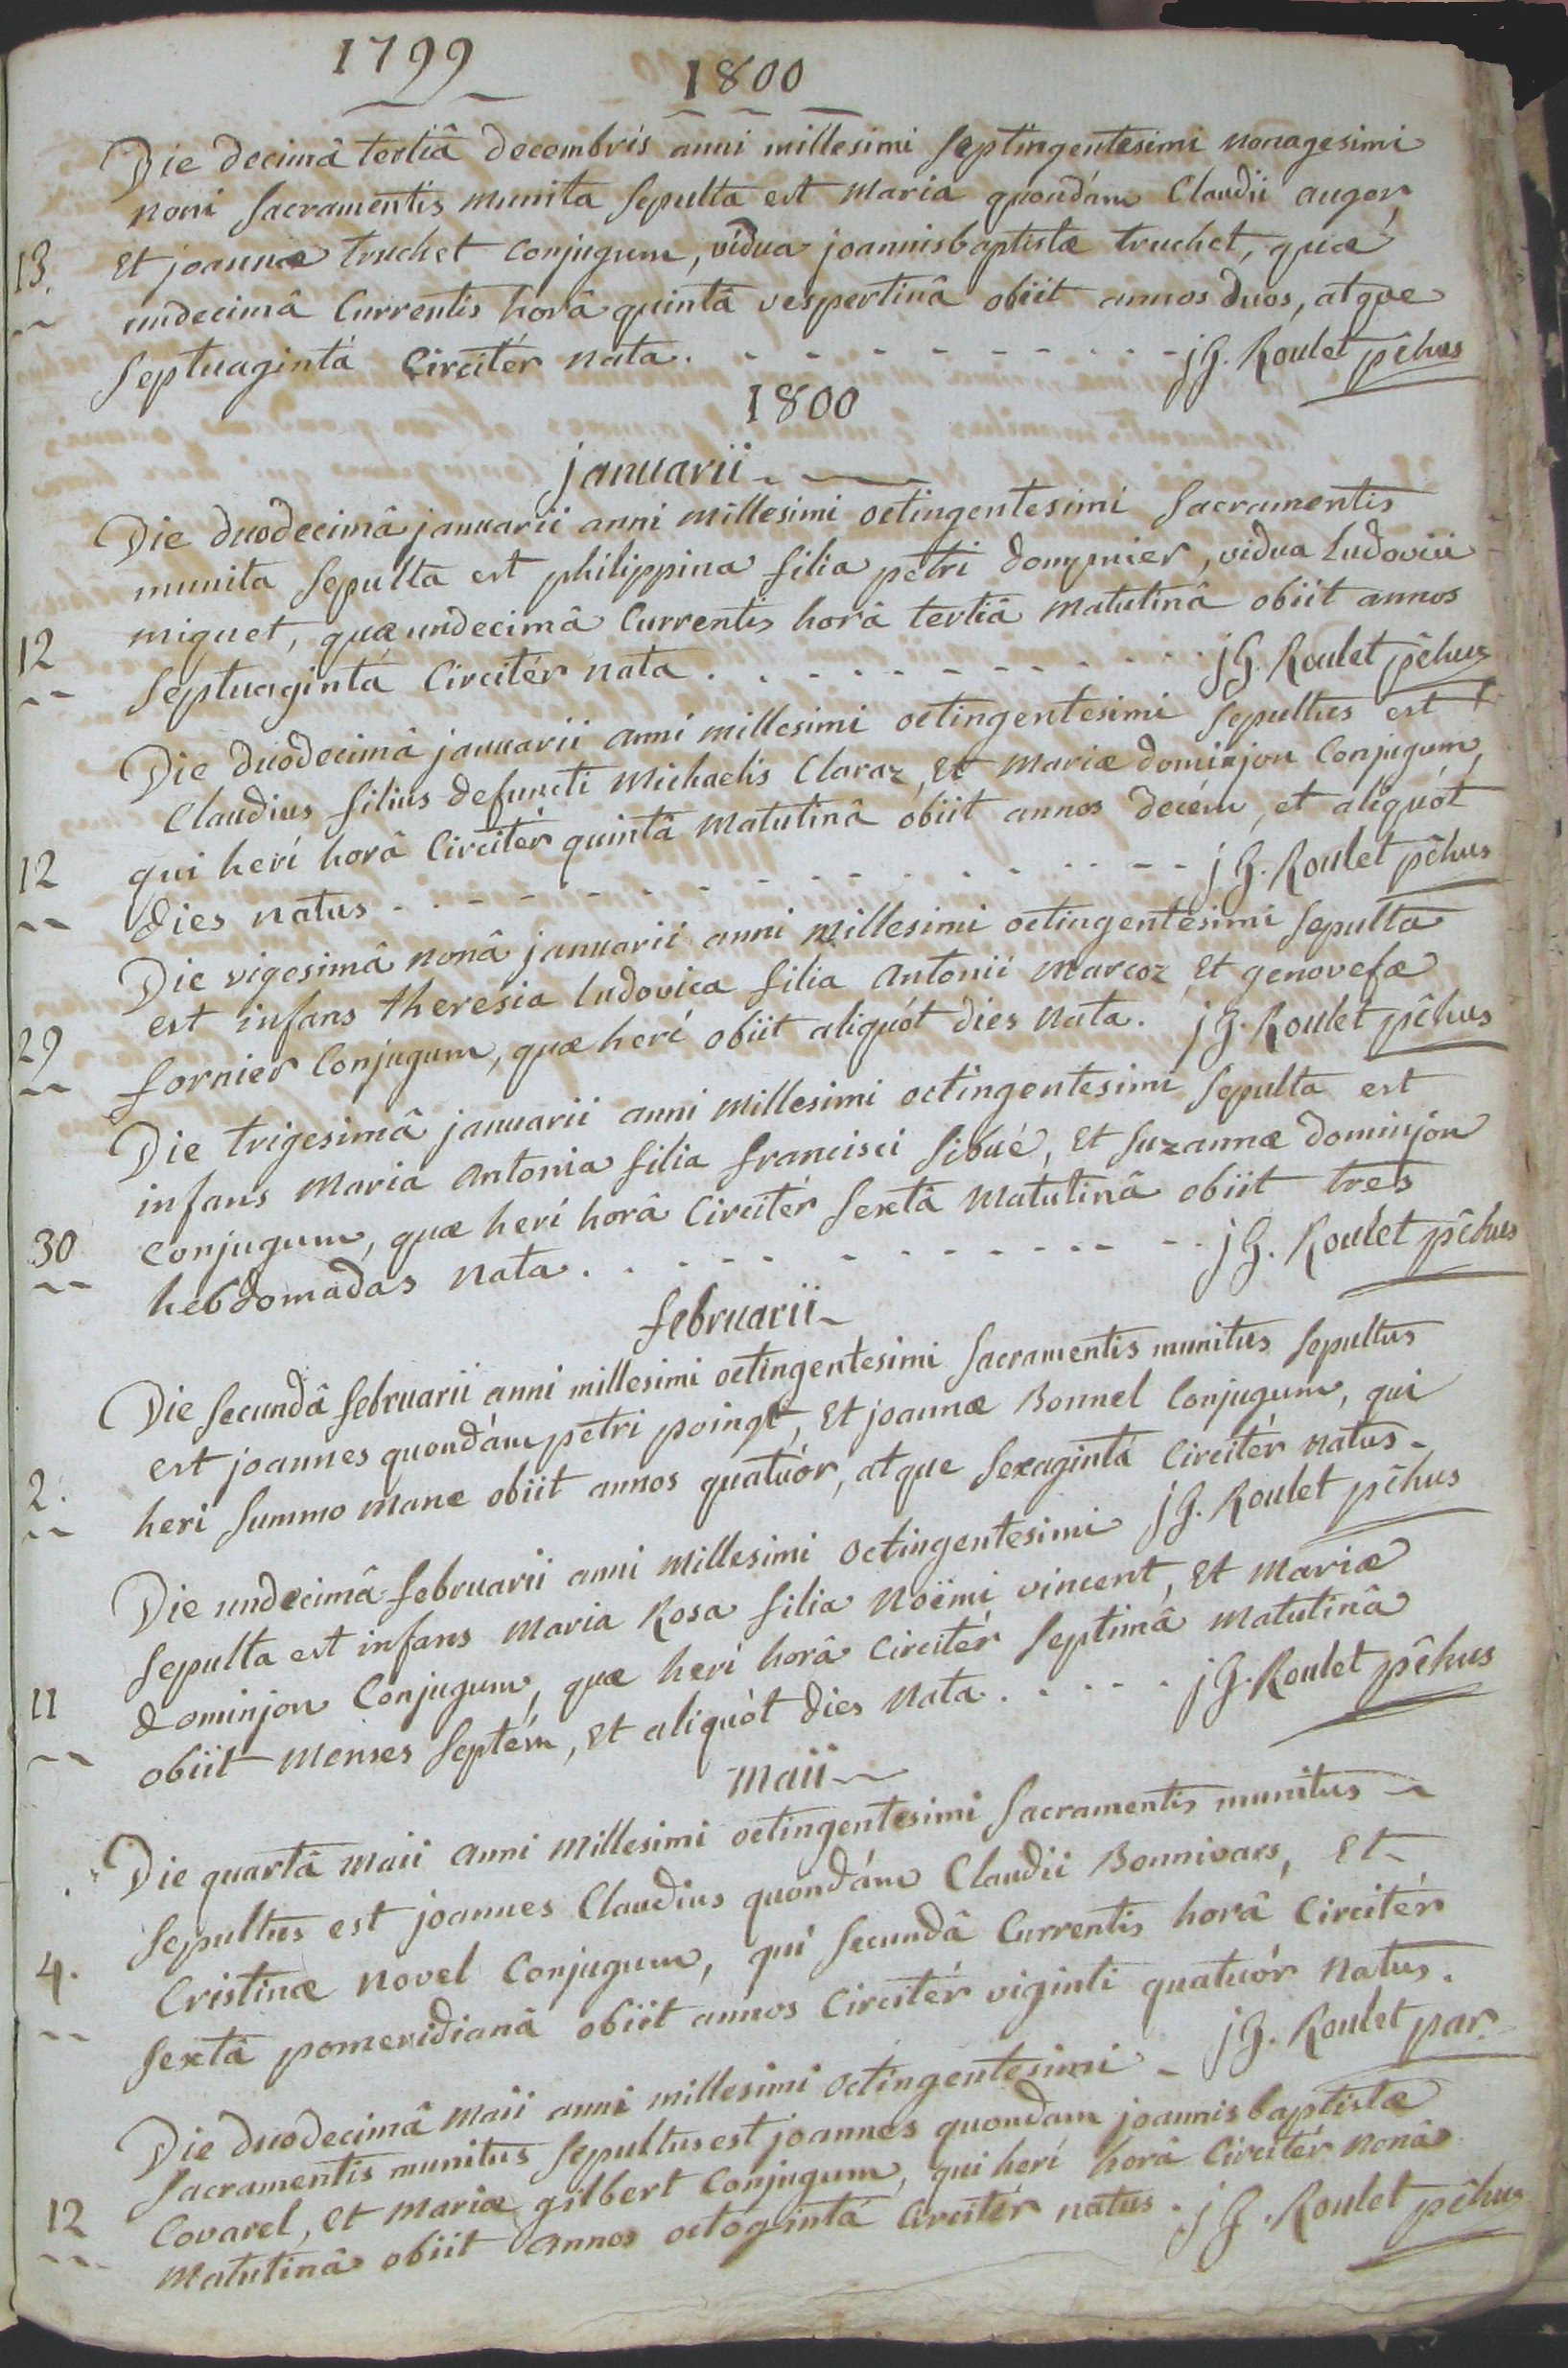 1799 1800
Die decimâ tertiâ decembris anni millesimi septingentesimi nonagesimi
noni sacramentis munita sepulta est Maria quondám Claudii auger,
13. Et joannæ truchet conjugum, vidua joannisbaptistæ truchet, quæ
undecimâ Currentis horâ quintâ vespertinâ obiit annos duos, atque
septuagintá Circitér nata. jG. Roulet pêhus
1800
januarii
Die duodecimâ januarii anni millesimi octingentesimi Sacramentis
munita sepulta est philippina filia petri domnier, vidua ludovici
12 miquet, quæ undecimâ Currentis horâ tertiâ matutinâ obiit annos
septuagintá Circitér nata. jG. Roulet pêhus
Die duodecimâ januarii anni millesimi octingentesimi sepultus est
Claudius filius defuncti Michaelis Claraz, Et Mariæ dominjon Conjugum,
12 qui herí horâ Circitér quintâ matutinâ obiit annos decém, et aliquót
dies natus jG. Roulet pêhus
Die vigesimâ nonâ januarii anni Millesimi octingentesimi sepulta
est infans theresia ludovica filia Antonii Marcoz, Et genovefæ
29 fornier Conjugum, quæ herí obiit aliquót dies nata. jG. Roulet pêhus
Die trigesimâ januarii anni millesimi octingentesimi sepulta est
infans Maria Antonia filia francisci sibué, Et Suzannæ dominjon
30 conjugum, quæ herí horâ Circitér Sextâ Matutinâ obiit tres
hebdomadas nata. jG. Roulet pêhus
februarii
Die Secundâ februarii anni millesimi octingentesimi Sacramentis munitus sepultus
est joannes quondám petri poingt, Et joannæ Bonnel Conjugum, qui
2. heri Summo mane obiit annos quatuór, atque Sexagintá Circitér natus.
jG. Roulet pêhus
Die undecimâ februarii anni Millesimi Octingentesimi
Sepulta est infans Maria Rosa filia Noëmi vincent, Et Mariæ
11 dominjon Conjugum, quæ herí horâ Circitér Septimâ Matutinâ
obiit Menses Septém, Et aliquót dies nata. jG. Roulet pêhus
Maii
Die quartâ Maii Anni Millesimi octingentesimi Sacramentis munitus
Sepultus est joannes Claudius quondám Claudii Bonnivars, Et
4. Cristinæ Novel Conjugum, qui Secundâ Currentis horâ Circitér
Sextâ pomeridianâ obiit annos Circitér viginti quatuór natus.
jG. Roulet par.
Die duodecimâ Maii anni millesimi Octingentesimi
Sacramentis munitus Sepultus est joannes quondam joannis baptistæ
12 Covarel, et Mariæ gilbert Conjugum, qui herí horâ Circitér nonâ
Matutinâ obiit Annos octogintá Circitér natus. jG. Roulet pêhus